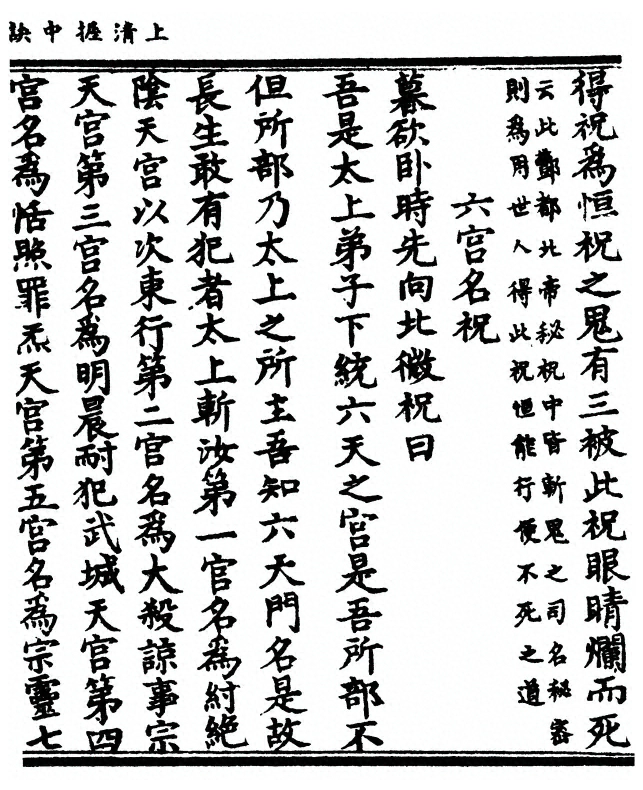 上清握中訣
得祝為恒祝之鬼有三被此祝眼睛爛而死
云此酆都北帝秘祝中皆斬鬼之司名秘密
則為用世人得此祝恒能行便不死之道
六宮名祝
暮欲卧時先向北微祝曰
吾是太上弟子下統六天之宮是吾所部不
但所部乃太上之所主吾知六天門名是故
長生敢有犯者太上斬汝第一官名為紂絕
陰天宮以次東行第二官名為大殺諒事宗
天宮第三宮名為明晨耐犯武城天宮第四
宮名為恬照罪炁天宮第五宮名為宗靈七